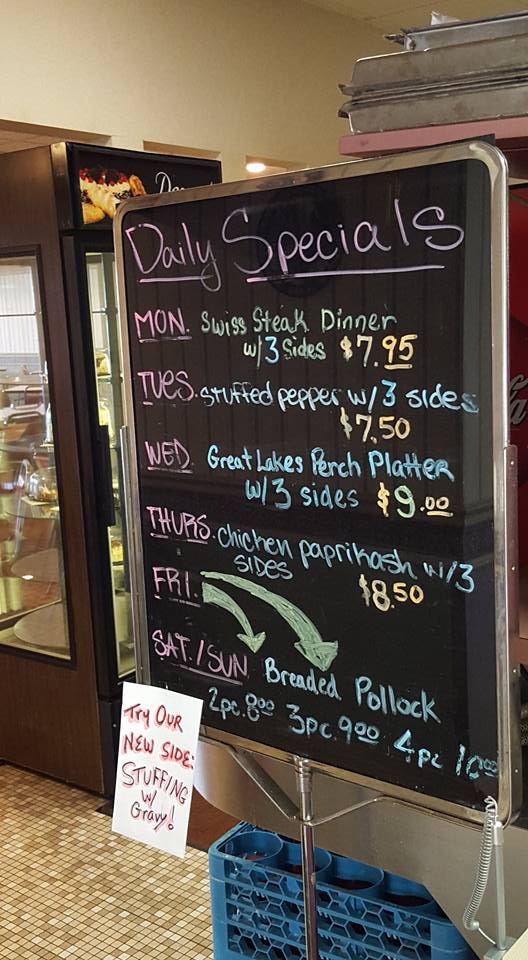 Daily Specials
MON. Swiss Steak Dinner
w/3 Sides $7.95
TUES. stuffed pepper w/3 sides
$7.50
WED. Great Lakes Perch Platter
w/3 sides $9.00
THURS. chicken paprikash w/3
SIDES $8.50
FRI.
SAT./SUN Breaded Pollock
2pc. 8.00 3pc. 9.00 4pc 10.00
Try OUR
NEW SIDE:
STUFFING
w/
Gravy!